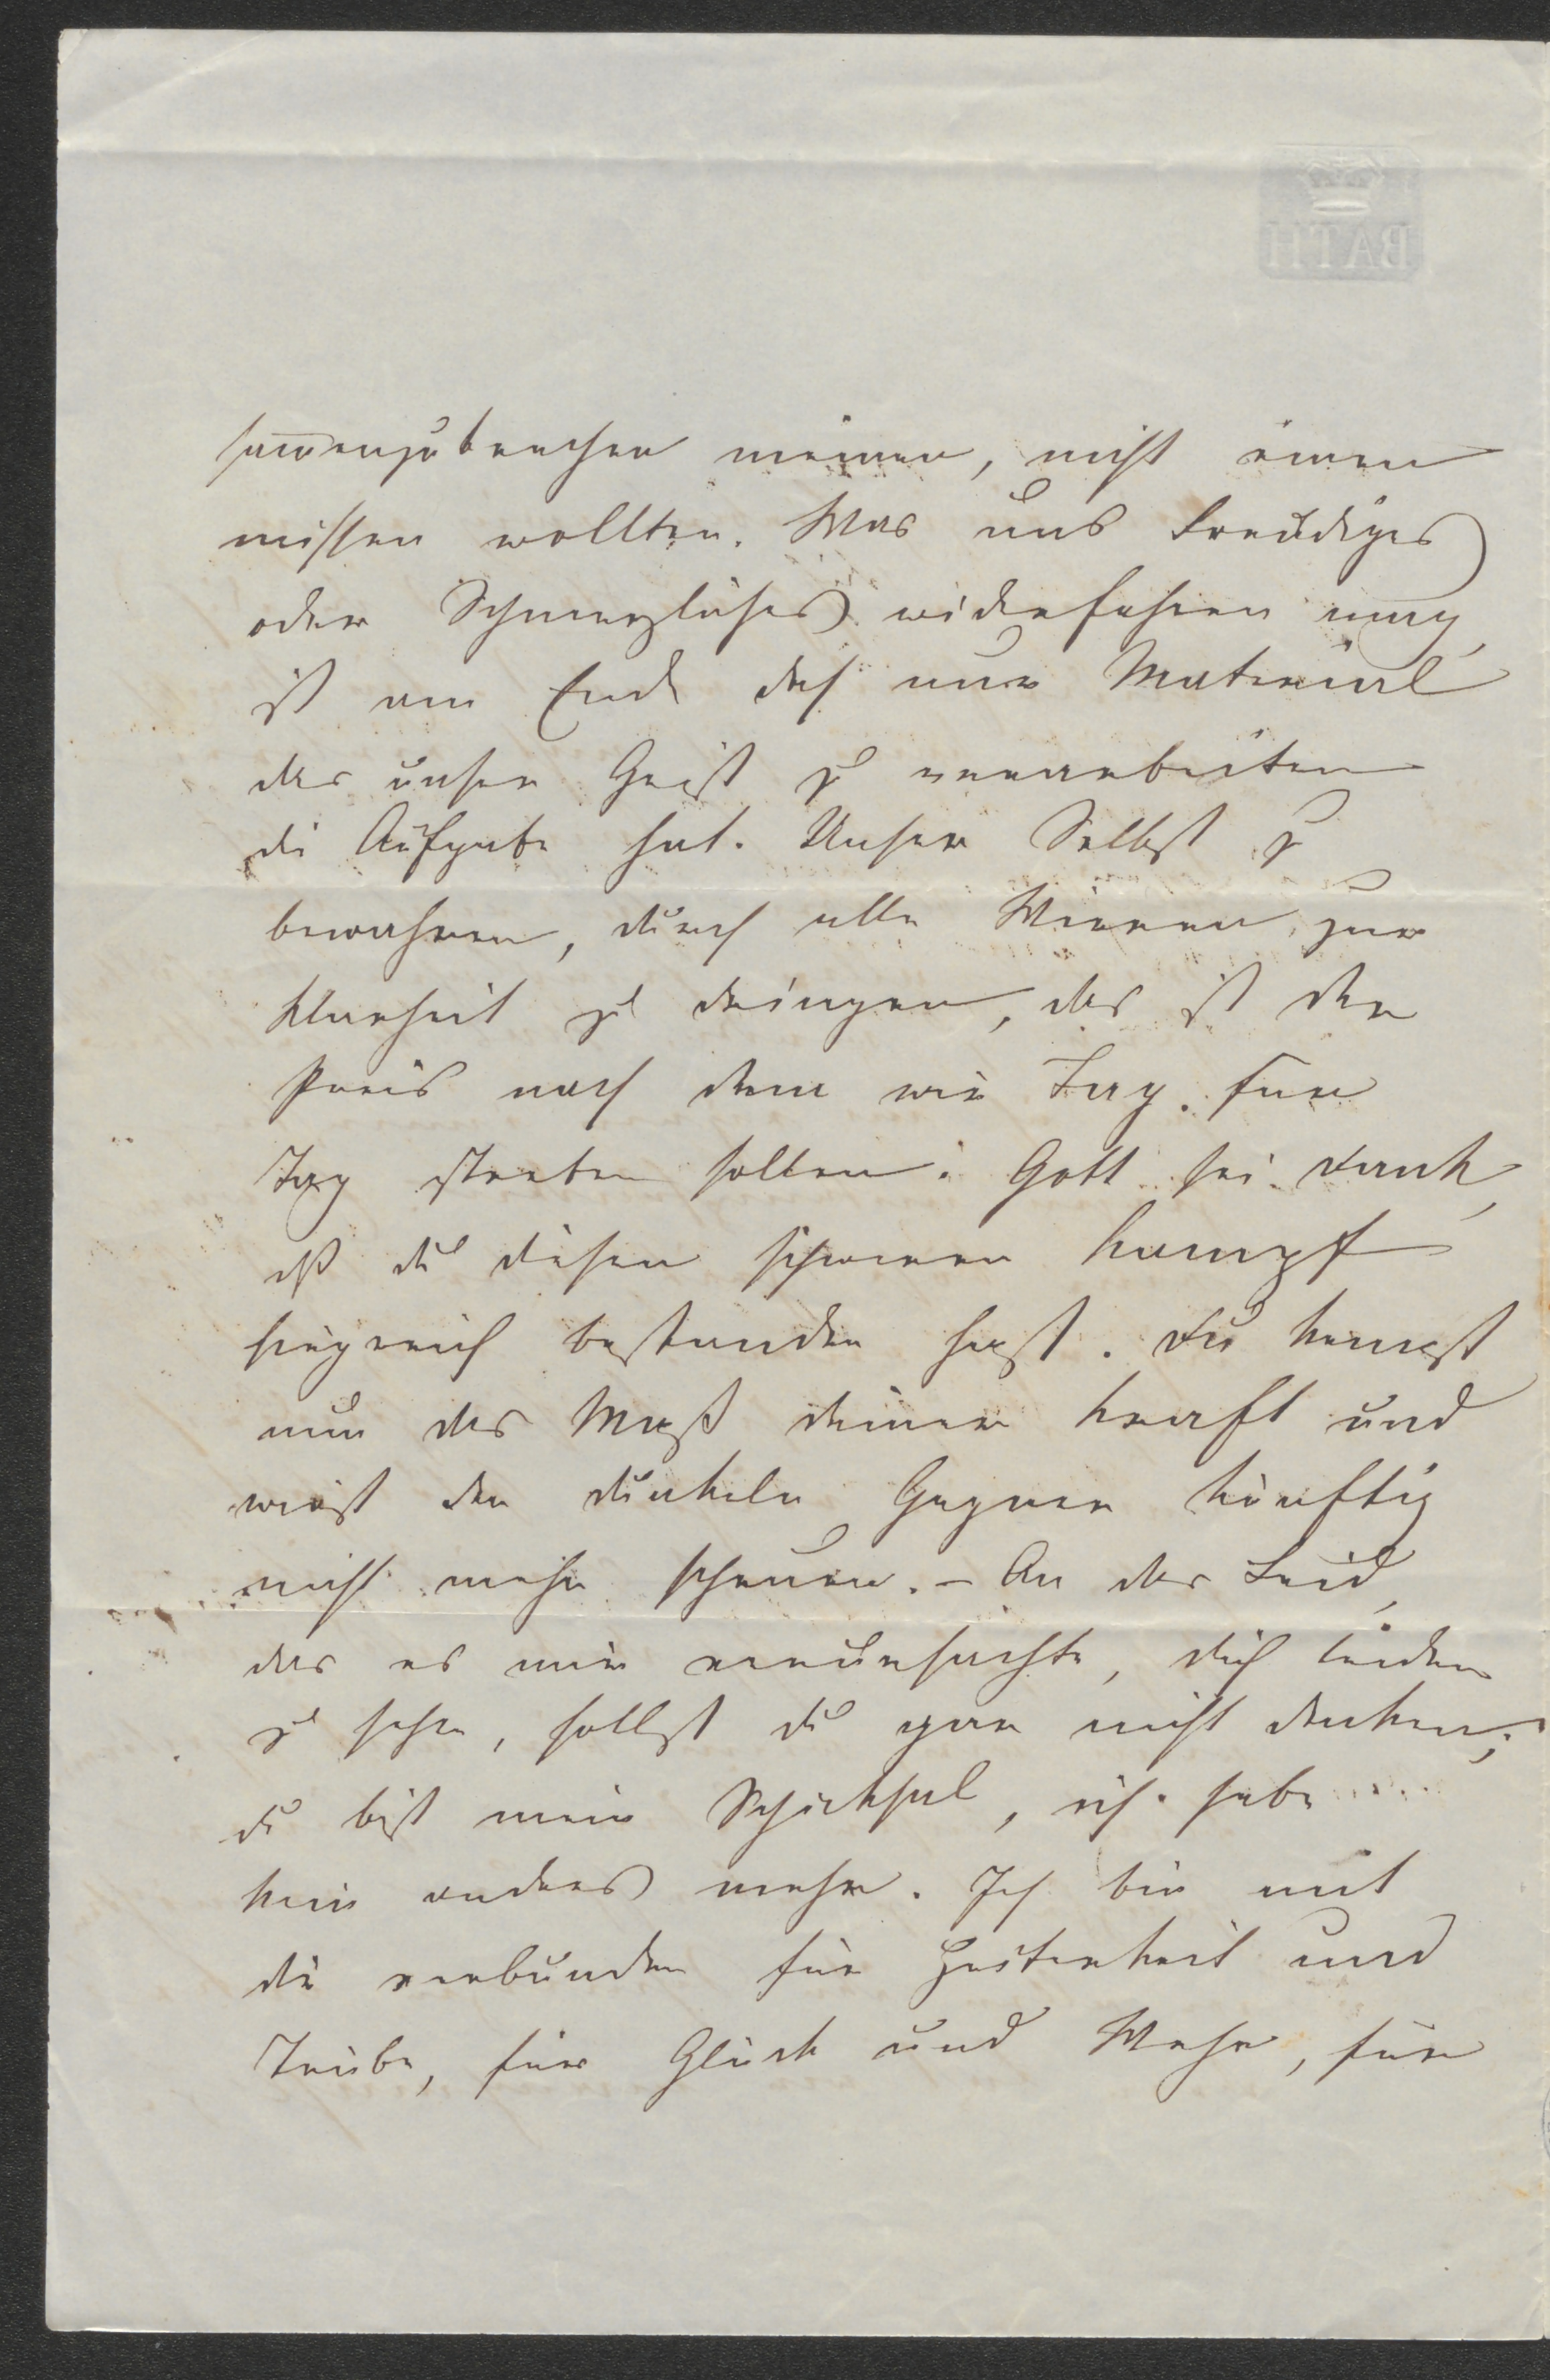 BATH
samenzubrechen meinen, nicht einen
missen wollten. Was uns Freudiges
oder Schmerzliches widerfahren mag,
ist am Ende doch nur Material
das unser Geist zu verarbeiten
die Aufgabe hat. Unser Selbst zu
bewahren, durch alle Wirren zur
Klarheit zu dringen, das ist der
Preis nach dem wir Tag für
Tag streben sollen. Gott sei Dank,
daß du diesen schweren Kampf
siegreich bestanden hast. Du kennst
nun das Maß deiner Kraft und
wirst den dunkeln Gegner künftig
nicht mehr scheuen. – An das Leid,
das es mir verursachte, dich leiden
zu sehn, sollst du gar nicht denken;
du bist mein Schicksal, ich habe
kein anderes mehr. Ich bin mit
dir verbunden für Heiterkeit und
Trübe, für Glück und Wehe, für